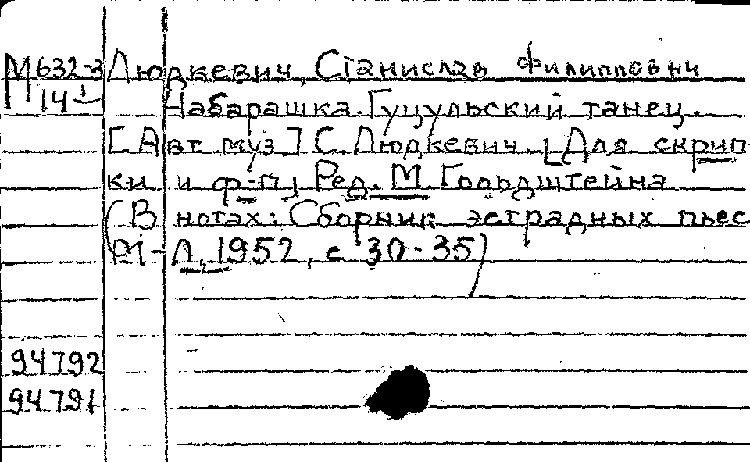 М632-3 Людкевич, Станислав Филиппович
14 Чабарашка. Гуцульский танец.
[Авт муз] С. Людкевич. [Для скрип
ки и ф-п, Ред. М. Гольдштейна
(В нотах: Сборник эстрадных пьес
М-Л, 1952, с 30-35)
94792
94791